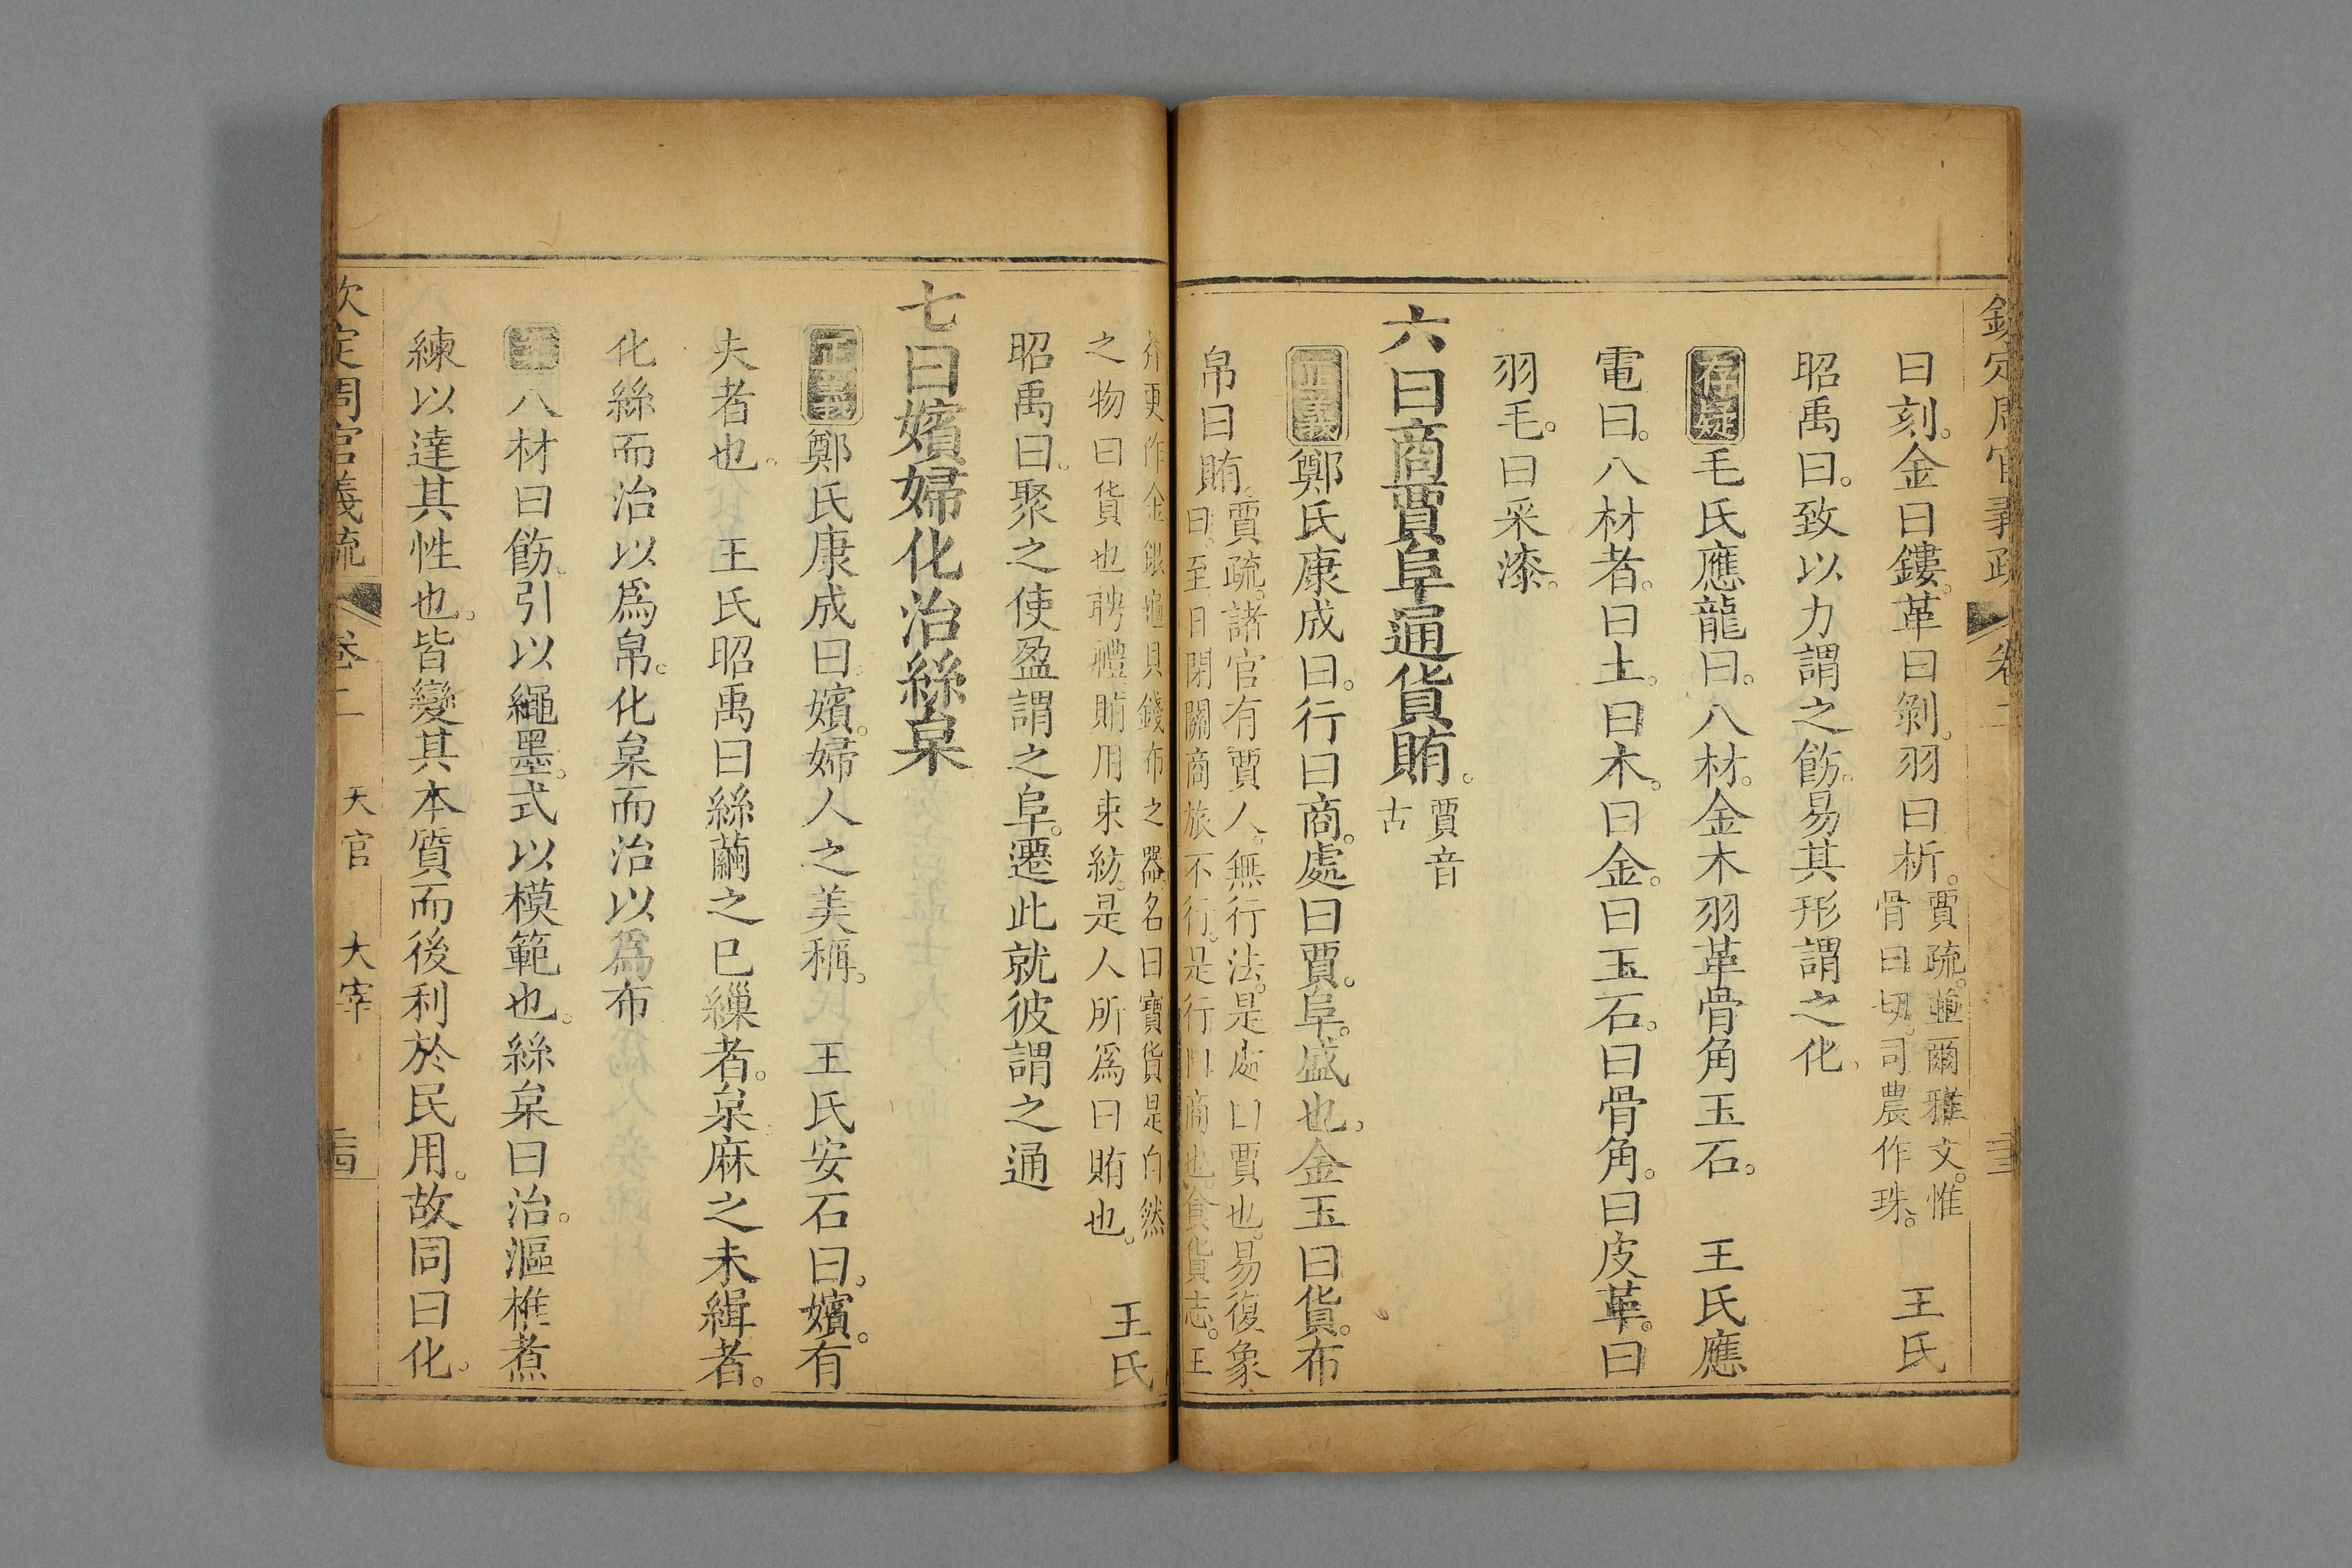 欽定周官義疏 卷二
曰刻。金曰鏤。革曰剝。羽曰析。賈疏。並爾雅文。惟骨曰切。司農作珠。 王氏
昭禹曰。致以力謂之飭。易其形謂之化。
存疑毛氏應龍曰。八材。金木羽革骨角玉石。 王氏應
電曰。八材者。曰土。曰木。曰金。曰玉石。曰骨角。曰皮革。曰
羽毛。曰采漆。
六曰商賈阜通貨賄。賈音古
正義鄭氏康成曰。行曰商。處曰賈。阜。盛也。金玉曰貨。布
帛曰賄。賈疏。諸官有賈人。無行法。是處曰賈也。易復象曰。至日閉關商旅不行。是行曰商也。食貨志。王
莽更作金銀龜貝錢布之器。名曰寶貨。是自然之物曰貨也。聘禮。賄用束紡。是人所爲曰賄也。 王氏
昭禹曰。聚之使盈謂之阜。遷此就彼謂之通
七曰嬪婦化治絲枲
正義鄭氏康成曰。嬪。婦人之美稱。 王氏安石曰。嬪。有
夫者也。 王氏昭禹曰絲繭之已繅者。枲麻之未緝者。
化絲而治以爲帛。化枲而治以爲布
案八材曰飭。引以繩墨。式以模範也。絲枲曰治。漚椎煮
練以達其性也。皆變其本質而後利於民用。故同曰化。
欽定周官義疏 卷二 天官 大宰